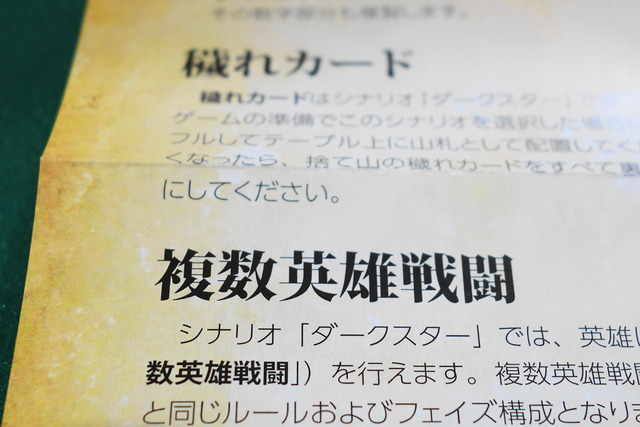 その数字部分も複製します。
穢れカード
穢れカードはシナリオ「ダークスター」で
ゲームの準備でこのシナリオを選択した場合
フルしてテーブル上に山札として配置してく
くなったら、捨て山の穢れカードをすべて裏
にしてください。
複数英雄戦闘
シナリオ「ダークスター」では、英雄
数英雄戦闘」）を行えます。複数英雄戦闘
と同じルールおよびフェイズ構成となりま